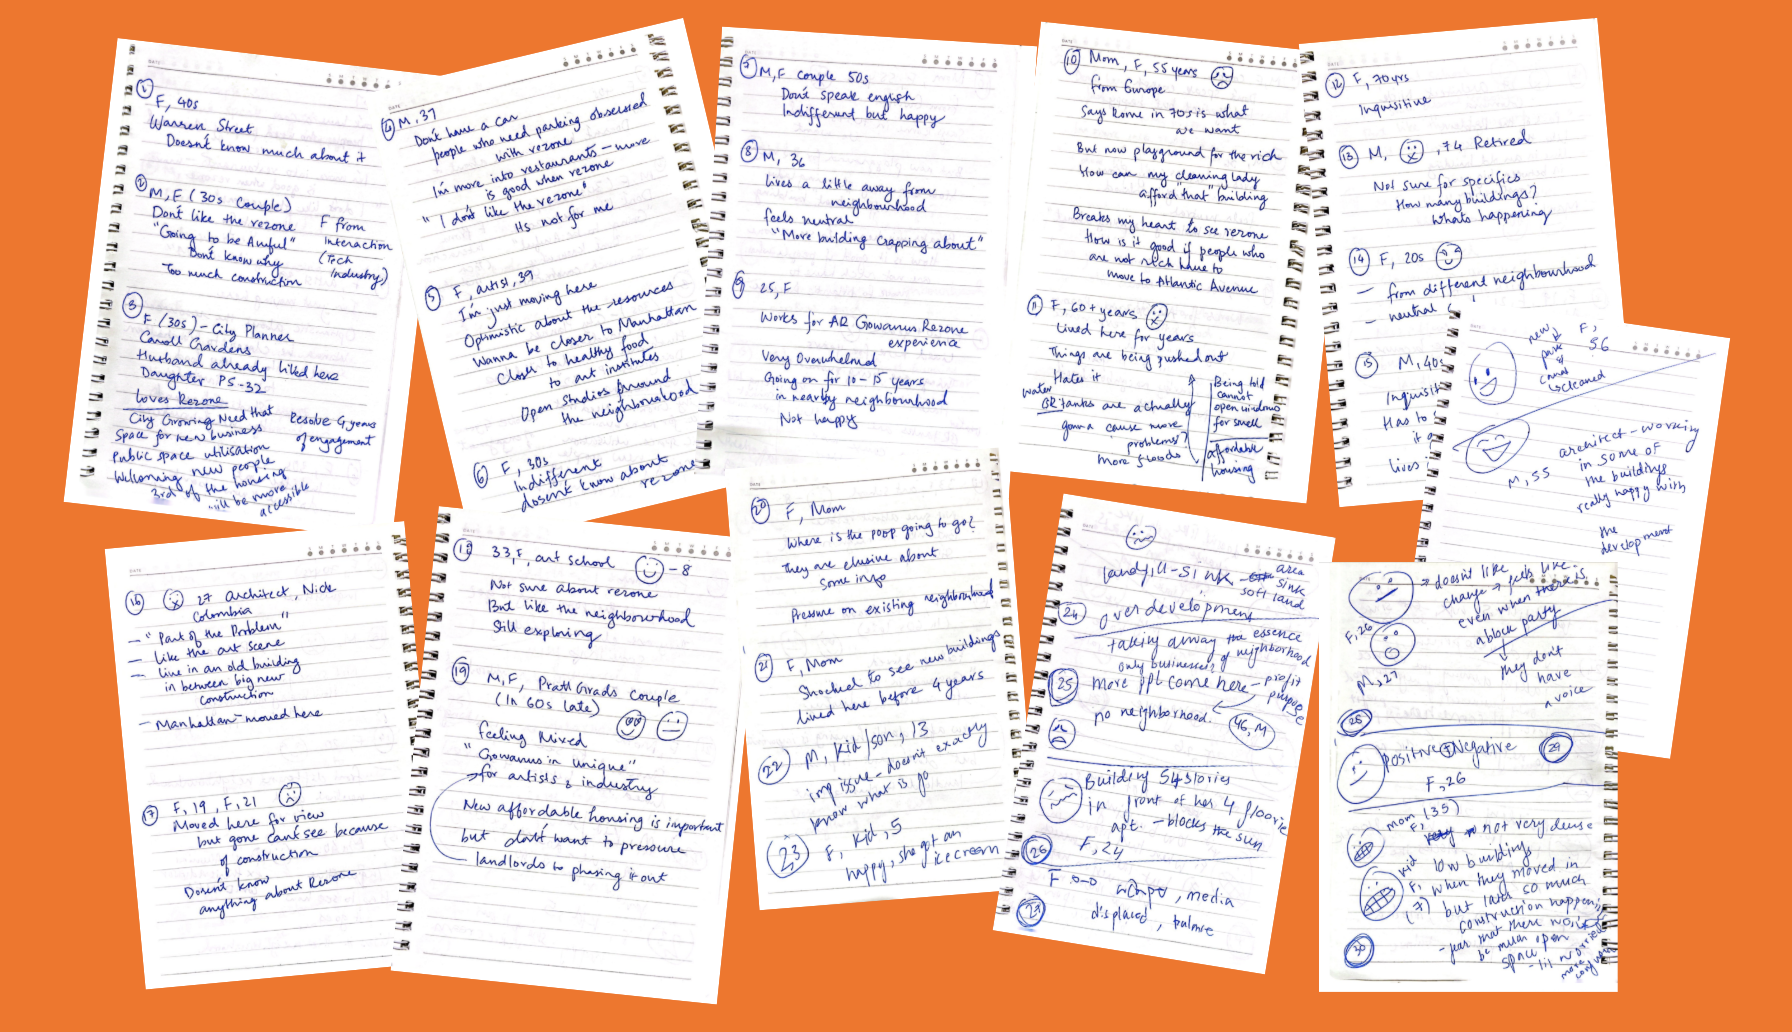 1
F, 40s
Warren Street
Doesn't know much about it
2
M, F (30s couple)
Don't like the rezone
"Going to be Awful"
Don't know why
Too much construction
F from
Interaction
(Tech
Industry)
3
F (30s) - City Planner
Caroll Gardens
Husband already lived here
Daughter PS-32
Loves Rezone
City Growing Need that
Space for new business
Public space utilisation
Welcoming new people
3rd of the housing
will be more
accessible
Resolve 4 years
of engagement
4 M, 37
Don't have a car
people who need parking obsessed
with rezone
I'm more into restaurants - more
is good when rezone
"I don't like the rezone"
Its not for me
5 F, artist, 39
I'm just moving here
Optimistic about the resources
Wanna be closer to Manhattan
Closer to healthy food
to art institutes
Open Studios around
the neighbourhood
6 F, 30s
Indifferent
doesn't know about
rezone
7 M, F couple 50s
Don't speak english
Indifferent but happy
8 M, 36
Lives a little away from
neighbourhood
feels neutral
"More building crapping about"
9 25, F
Works for AR Gowanus Rezone
experience
Very Overwhelmed
Going on for 10-15 years
in nearby neighbourhood
Not happy
10 Mom, F, 55 years
from Europe
Says Rome in 70s is what
we want
But now playground for the rich
How can my cleaning lady
afford "that" building
Breaks my heart to see rezone
How is it good if people who
are not rich have to
move to Atlantic Avenue
11 F, 60+ years
Lived here for years
Things are being pushed out
Hates it
water
tanks are actually
gonna cause more
problems?
more floods
Being told
cannot
open windows
for smell
affordable
housing
12 F, 70yrs
Inquisitive
13 M, , 74 Retired
Not sure for specifics
How many buildings?
Whats happening
14 F, 20s
- from different neighbourhood
- neutral
15 M, 40s
Inquisit
Has to
it a
lives
new
park
&
canal
cleaned
F,
56
M, 55
architect - working
in some of
the buildings
really happy with
the
development
16 27 Architect, Nide
Colombia
- "Part of the Problem"
- like the art scene
- live in an old building
in between big new
construction
- Manhattan - moved here
17 F, 19, F, 21
Moved here for view
but gone can't see because
of construction
Doesn't know
anything about Rezone
18 33, F, art school - 8
Not sure about rezone
But like the neighbourhood
Still exploring
19 M, F, Pratt Grads couple
(In 60s late)
feeling Mixed
"Gowanus in unique"
for artists & industry
New affordable housing is important
but don't want to pressure
landlords to phasing it out
20 F, Mom
Where is the poop going to go?
They are elusive about
some info
Pressure on existing neighbourhood
21 F, Mom
Shocked to see new buildings
lived here before 4 years
22 M, Kid/son, 13
imp issue - doesn't exactly
know what is go
23 F, Kid, 5
happy, she got an
icecream
landfill - sink - area
sink
soft land
24 over development
taking away the essence
of neighborhood
only businesses
25 more ppl come here - profit
purpose
no neighborhood.
46, M
Building 54 stories
in front of her 4 floorie
apt. - blocks the sun
26 F, 24
F , media
27 displaced,
doesn't like
change → feels like
even when there is
a block party
F, 26
M, 27
they don't
have
a voice
28
Positive & Negative 29
F, 26
mom (35)
F,
not very dense
low buildings
Kid
F,
(7)
when they moved in
but later so much
construction happening
- fear that there won't
be much open
space
30